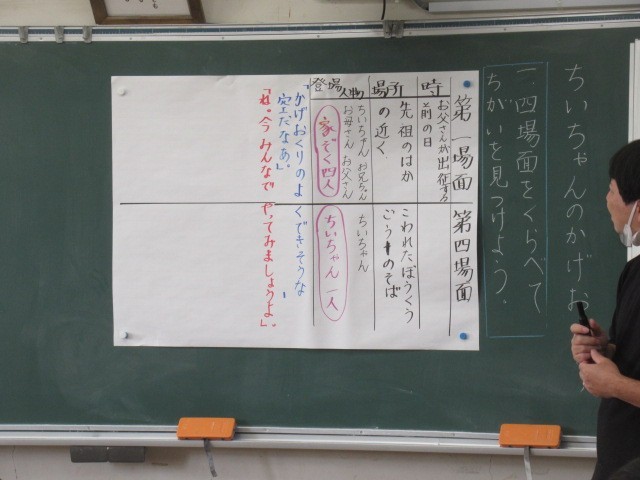 ちいちゃんのかげお
一、四場面をくらべて
ちがいを見つけよう。
第一場面
第四場面
時
お父さんが出征する
前の日
場所
先祖のはか
の近く
こわれたぼうくう
ごうのそば
登場人物
ちいちゃん お兄ちゃん
お母さん お父さん
家ぞく四人
ちいちゃん
ちいちゃん 一人
「かげおくりのよくできそうな
空だなあ。」
「ね。今みんなでやってみましょうよ」。